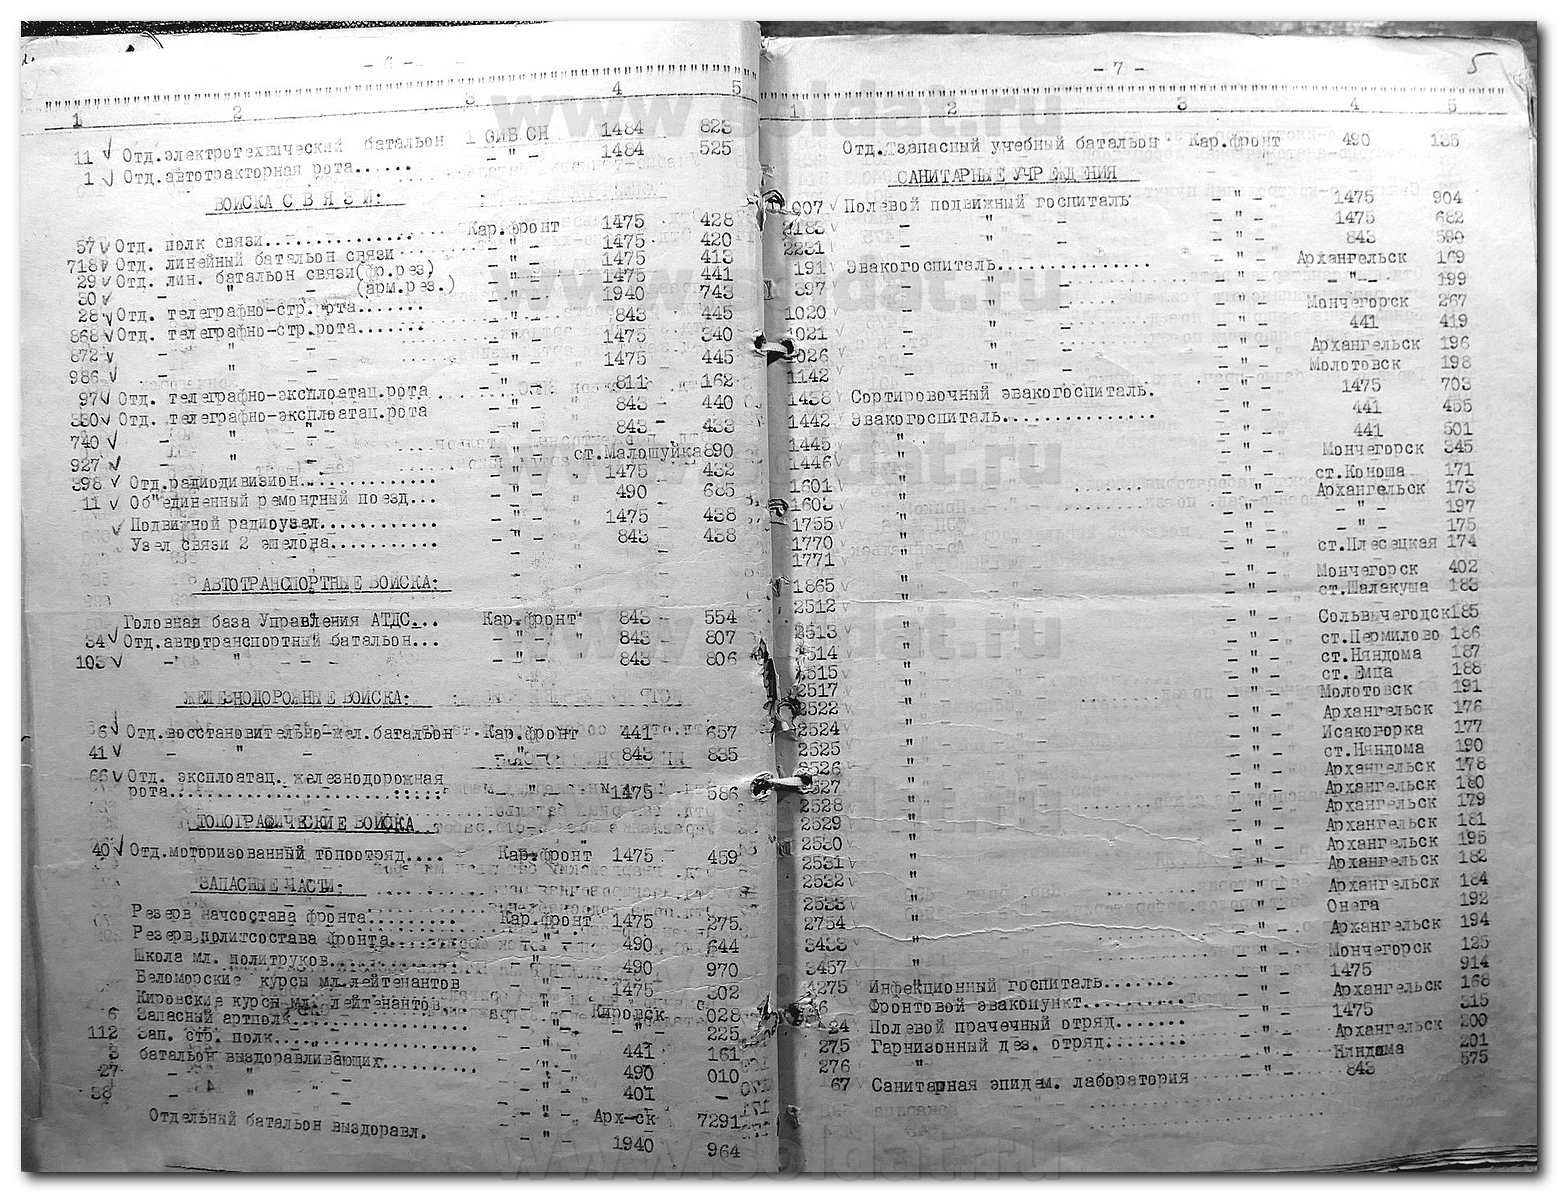 - 6 -
1 2 3 4 5
11 Отд.электротехнический батальон 1 ОИБ СН 1484 823
1 Отд.автотракторная рота...... - " - 1484 525
ВОЙСКА С В Я З И:
57 Отд. полк связи............... Кар.фронт 1475 428
718 Отд. линейный батальон связи - " - 1475 420
29 Отд. лин. батальон связи(фр.рез) - " - 1475 413
30 - " - (арм.рез.) - " - 1475 441
28 Отд. телеграфно-стр.рота....... - " - 1940 743
868 Отд. телеграфно-стр.рота....... - " - 843 445
872 - " - - " - 1475 340
986 - " - - " - 1475 445
97 Отд. телеграфно-эксплоатац.рота - " - 811 162
380 Отд. телеграфно-эксплоатац.рота - " - 843 440
740 - " - - " - 843 433
927 - " - - " - ст.Малошуйка 890
398 Отд.радиодивизион............. - " - 1475 432
11 Об"единенный ремонтный поезд... - " - 490 685
Подвижной радиоузел............ - " - 1475 438
Узел связи 2 эшелона........... - " - 843 438
АВТОТРАНСПОРТНЫЕ ВОЙСКА:
Головная база Управления АТДС... Кар.фронт 843 554
34 Отд.автотранспортный батальон... - " - 843 807
103 - " - - " - 843 806
ЖЕЛЕЗНОДОРОЖНЫЕ ВОЙСКА:
6 Отд.восстановительно-жел.батальон Кар.фронт 441 657
41 - " - - " - 843 835
66 Отд. эксплоатац. железнодорожная
рота........................... - " - 1475 586
ТОПОГРАФИЧЕСКИЕ ВОЙСКА
40 Отд.моторизованный топоотряд.... Кар.фронт 1475 459
ЗАПАСНЫЕ ЧАСТИ:
Резерв начсостава фронта......... Кар.фронт 1475 275
Резерв политсостава фронта....... - " - 490 644
Школа мл. политруков............. - " - 490 970
Беломорские курсы мл.лейтенантов - " - 1475 302
Кировские курсы мл. лейтенантов. - " - Кировск 028
6 Запасный артполк................ - " - - " - 225
112 Зап. стр. полк.................. - " - 441 161
3 батальон выздоравливающих.......... - " - 490 010
27 - " - - " - 401 -
38 - " - - " - Арх-ск 7291
Отдельный батальон выздоравл. - " - 1940 964
- 7 - 5
1 2 3 4 5
Отд. запасный учебный батальон Кар.фронт 490 135
САНИТАРНЫЕ УЧРЕЖДЕНИЯ
Полевой подвижный госпиталь - " - 1475 904
2183 - " - - " - 1475 682
2231 - " - - " - 843 590
191 Эвакогоспиталь............... - " - Архангельск 169
397 - " - - " - - " - 199
1020 - " - - " - Мончегорск 267
1021 - " - - " - 441 419
1026 - " - - " - Архангельск 196
1142 - " - - " - Молотовск 198
1438 Сортировочный эвакогоспиталь. - " - 1475 703
1442 Эвакогоспиталь............... - " - 441 455
1445 " - " - 441 501
1446 " - " - Мончегорск 345
1601 " - " - ст.Коноша 171
1603 " - " - Архангельск 173
1755 " - " - - " - 197
1770 " - " - - " - 175
1771 " - " - ст.Плесецкая 174
1865 " - " - Мончегорск 402
2512 " - " - ст.Шалакуша 183
2513 " - " - Сольвычегодск 185
2514 " - " - ст.Пермилово 186
2515 " - " - ст.Няндома 187
2517 " - " - ст.Емца 188
2522 " - " - Молотовск 191
2524 " - " - Архангельск 176
2525 " - " - Исакогорка 177
2526 " - " - ст.Няндома 190
2527 " - " - Архангельск 178
2528 " - " - Архангельск 180
2529 " - " - Архангельск 179
2530 " - " - Архангельск 181
2531 " - " - Архангельск 195
2532 " - " - Архангельск 182
2533 " - " - Архангельск 184
2754 " - " - Онега 192
3433 " - " - Архангельск 194
3457 " - " - Мончегорск 125
4275 Инфекционный госпиталь........ - " - 1475 914
Фронтовой эвакопункт.......... - " - Архангельск 168
24 Полевой прачечный отряд....... - " - 1475 315
275 Гарнизонный дез. отряд........ - " - Архангельск 200
276 " - " - Няндома 201
67 Санитарная эпидем. лаборатория - " - 843 575
www.soldat.ru
www.soldat.ru
www.soldat.ru
www.soldat.ru
www.soldat.ru
www.soldat.ru
www.soldat.ru